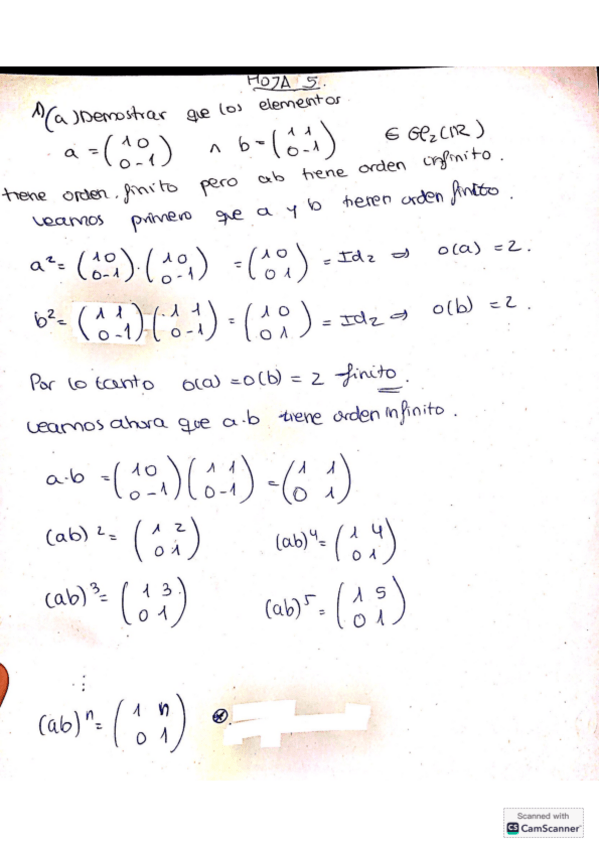 HOJA 5.
1)(a) Demostrar que los elementos
a = (1 0 / 0 -1) ∧ b = (1 1 / 0 -1) ∈ Gl₂(IR)
tiene orden finito pero ab tiene orden infinito.
Veamos primero que a y b tienen orden finito.
a² = (1 0 / 0 -1) · (1 0 / 0 -1) = (1 0 / 0 1) = Id₂ ⇒ o(a) = 2.
b² = (1 1 / 0 -1) · (1 1 / 0 -1) = (1 0 / 0 1) = Id₂ ⇒ o(b) = 2.
Por lo tanto o(a) = o(b) = 2 finito.
Veamos ahora que a·b tiene orden infinito.
a·b = (1 0 / 0 -1) (1 1 / 0 -1) = (1 1 / 0 1)
(ab)² = (1 2 / 0 1) (ab)⁴ = (1 4 / 0 1)
(ab)³ = (1 3 / 0 1) (ab)⁵ = (1 5 / 0 1)
⋮
(ab)ⁿ = (1 n / 0 1) ⊛
Scanned with
CS CamScanner